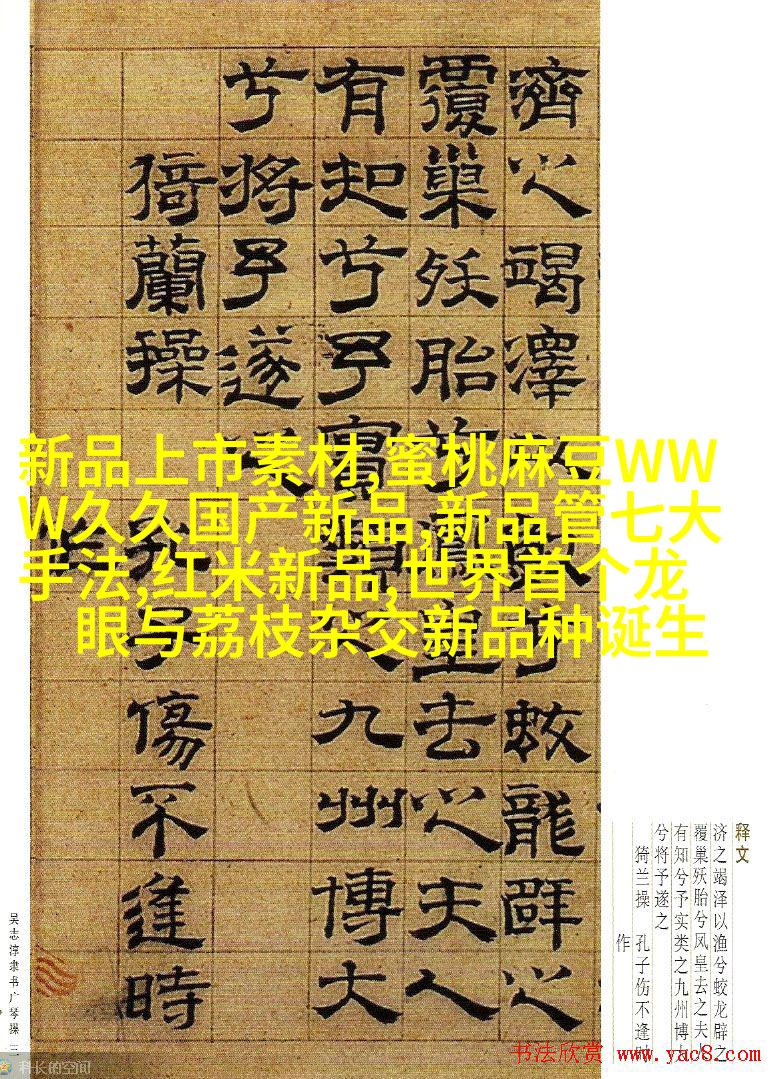 濟之竭澤以漁兮蛟龍辟之
覆巢殀胎兮鳳皇去之夫人
有知兮予實類之九州博大
兮將予遂之
猗蘭操 孔子傷不逢時
作
新品上市素材,蜜桃麻豆WW
W久久国产新品,新品管七大
手法,红米新品,世界首个龙
眼与荔枝杂交新品种诞生
释文
济之竭泽以渔兮蛟龙辟之
覆巢殀胎兮凤皇去之夫人
有知兮予实类之九州博
兮将予遂之
猗兰操 孔子伤不逢时
作
吴志淳隶书广琴操 三
科长的空间
书法欣赏 www.yac8.com